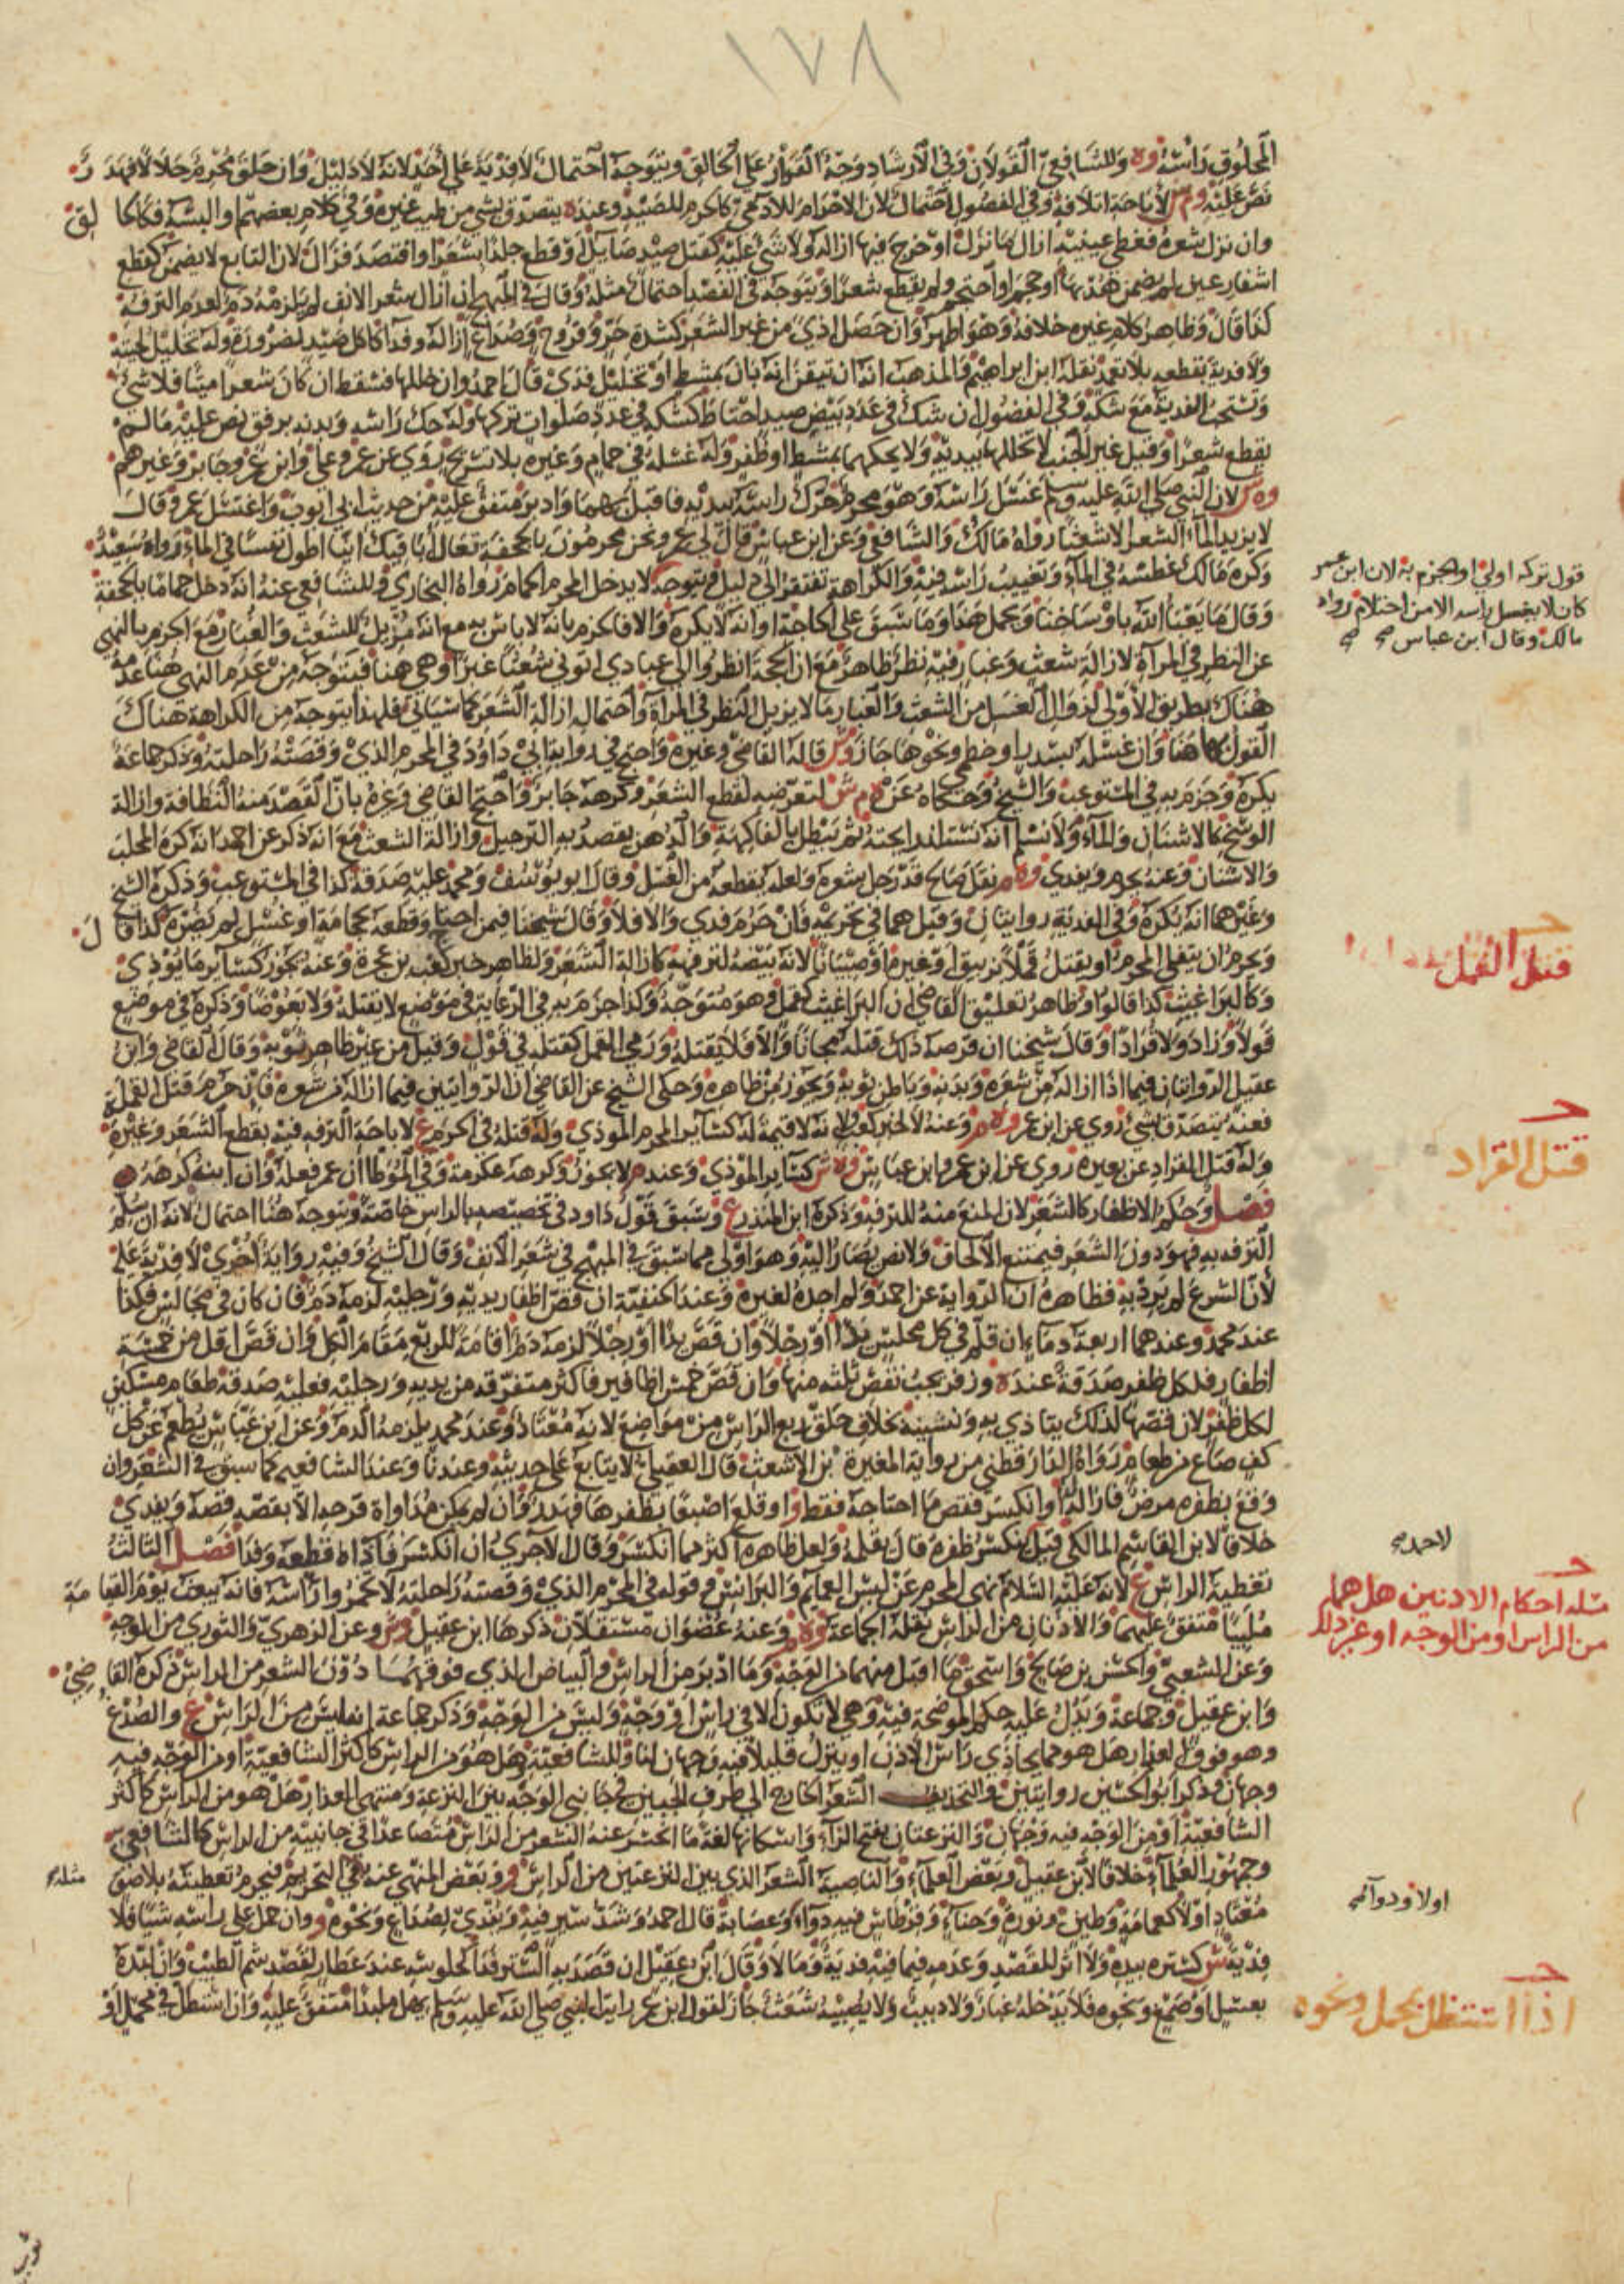 ١٧٨
المحلوق رأسه وه وللشافعي القولان وفي الارشاد وجه القرار على الحالق ويتوجه احتمال لا فدية على أحد لانه لا دليل وان حلق محرم حلالا فهدر
نص عليه وم ش لاباحة اتلافه وفي الفصول احتمال لان الاحرام للآدمي كالحرم للصيد وعنده يتصدق بشي من طيب غيره وفي كلام بعضهم او البسه فكالحالق
وان نزل شعره فغطى عينيه ازال ما نزل او خرج فيها ازاله ولا شي عليه كقتل صيد صايل او قطع جلدا بشعر او افتصد فزال لان التابع لا يضمن كقطع
اشفار عين لم يضمن هدبها او حجم او احتجم ولم يقطع شعرا ويتوجه في الفصد احتمال مثله وقال في المبهج ان ازال شعر الانف لم يلزمه دم لعدم الترفه
كذا قال وظاهر كلام غيره خلافه وهو اظهر وان حصل اذى من غير الشعر كشدة حر وقروح وصداع ازاله وفدا كاكل صيد لضرورة وله تخليل لحيته
ولا فدية بقطعه بلا تعمد نقله ابن ابراهيم والمذهب انه ان تيقن انه بان بمشط او تخليل فدى قال احمد وان خللها فسقط ان كان شعرا ميتا فلا شي
وتستحب الفدية مع شكه وفي الفصول ان شك في عدد بيض صيد احتاط كشكه في عدد صلوات تركها وله حك راسه وبدنه برفق نص عليه ما لم
يقطع شعرا وقيل غير الجنب لا يخللها بيديه ولا يحكهما بمشط او ظفر وله غسله في حمام وغيره بلا تسريح روي عن عمر وعلي وابن عمر وجابر وغيرهم
وه ش لان النبي صلى الله عليه وسلم غسل راسه وهو محرم ثم حرك راسه بيديه فاقبل بهما وادبر متفق عليه من حديث ابي ايوب واغتسل عمر وقال
لا يزيد الماء الشعر الا شعثا رواه مالك والشافعي وعن ابن عباس قال لي عمر ونحن محرمون بالجحفة تعال أباقيك اينا اطول نفسا في الماء رواه سعيد
وكره مالك غطسه في الماء وتغييب راسه فيه والكراهة تفتقر الى دليل ويتوجه لا يدخل المحرم الحمام رواه البخاري وللشافعي عنه انه دخل حماما بالجحفة
وقال ما يعبأ الله باوساخنا ويحمل هذا وما سبق على الحاجة او انه لا يكره والا فالجزم بانه لا باس به مع انه مزيل للشعث والغبار مع الجزم بالنهي
عن النظر في المرآة لازالة شعث وغبار فيه نظر ظاهر مع ان الحجة انظروا الى عبادي اتوني شعثا غبرا وهي هنا فيتوجه من عدم النهي هنا عدمه
هناك بطريق الاولى لزوال الغسل من الشعث والغبار ما لا يزيل النظر في المرآة واحتماله ازالة الشعر كما سياتي فلهذا يتوجه من الكراهة هناك
القول بها هنا وان غسله بسدر او خطمي ونحوها جاز وش قاله القاضي وغيره واحتج في رواية ابي داود في المحرم الذي وقصته راحلته وذكر جماعة
يكره وجزم به في المستوعب والشيخ وحكاه عن ه م ش لتعرضه لقطع الشعر وكرهه جابر واحتج القاضي وغيره بان القصد منه النظافة وازالة
الوسخ كالاشنان والماء ولا نسلم انه تستلذ رايحته ثم يبطل بالفاكهة والدهن يقصد به الترجيل وازالة الشعث مع انه ذكر عن احمد انه كره المحلب
والاشنان وعنه يحرم ويفدي وه م نقل صالح قد رجل شعره ولعله يقطعه من الغسل وقال ابو يوسف ومحمد عليه صدقة كذا في المستوعب وذكره الشيخ
وغيرهما انه يكره وفي الفدية روايتان وقيل هما في تحريمه فان حرم فدى والا فلا وقال شيخنا فيمن احتاج وقطعه لحجامة او غسل لم يضره كذا قال
ويحرم ان يتفلى المحرم او يقتل قملا بزيبق او غيره او صئبانا لانه بيضه لترفهه كازالة الشعر ولظاهر خبر كعب بن عجرة وعنه يجوز كساير ما يوذي
وكالبراغيث كذا قالوا وظاهر تعليق القاضي ان البراغيث كقمل وهو متوجه وكذا جزم به في الرعاية في موضع لا يقتله ولا بعوضا وذكره في موضع
قولا وزاد ولا قرادا وقال شيخنا ان قرصه ذلك قتله مجانا والا فلا يقتله ورمي القمل كقتله في قول وقيل من غير ظاهر ثوبه وقال القاضي وابن
عقيل الروايتان فيما اذا ازاله من شعره وبدنه وباطن ثوبه ويجوز من ظاهره وحكى الشيخ عن القاضي ان الروايتين فيما ازاله من شعره فان حرم قتل القملة
فعنه يتصدق بشي روي عن ابن عمر وه م وعنه لا لخبر كعب ولانه لا قيمة له كساير المحرم الموذي وله قتله في الحرم ع لاباحة الترفه فيه بقطع الشعر وغيره
وله قتل القراد عن بعيره روي عن ابن عمر وابن عباس وه ش كساير الموذي وعند م لا يجوز وكرهه عكرمة وفي الموطا ان عمر فعله وان ابنه كرهه
فصل وحكم الاظفار كالشعر لان المنع منه للترفه وذكره ابن المنذر ع وسبق قول داود في تخصيصه بالراس خاصة ويتوجه هنا احتمال لانه ان سلم
الترفه به فهو دون الشعر فيمتنع الالحاق ولا نص يصار اليه وهو اولى مما سبق في المبهج في شعر الانف وقال الشيخ وفيه رواية اخرى لا فدية عليه
لان الشرع لم يرد به فظاهره ان الرواية عن احمد ولم اجده لغيره وعند الحنفية ان قص اظفار يديه ورجليه لزمه دم فان كان في مجالس فكذا
عند محمد وعندهما اربعة دماء ان قلم في كل مجلس يدا او رجلا وان قص يدا او رجلا لزمه دم اقامة للربع مقام الكل وان قص اقل من خمسة
اظفار فلكل ظفر صدقة عنده وزفر يجب بقص ثلثه منها وان قص خمس اظافير فاكثر متفرقه من يديه ورجليه فعليه صدقة طعام مسكين
لكل ظفر لان قصها لذلك يتاذى به وتشينه بخلاف حلق ربع الراس من مواضع لانه معتاد وعند محمد يلزمه الدم وعن ابن عباس يطعم عن كل
كف صاع من طعام رواه الدارقطني من رواية المغيرة بن الاشعث قال العقيلي لا يتابع على حديثه وعندنا وعند الشافعيه كما سبق في الشعر وان
وقع بظفره مرض فازاله او انكسر فقص ما احتاجه فقط وا وقلع اصبعا بظفرها فهدر وان لم يمكن مداواة قرحه الا بقصه قصه ويفدي
خلافا لابن القاسم المالكي قيل ينكسر ظفره قال يقلمه ولعل ظاهره اكثر مما انكسر وقال الآجري ان انكسر فآذاه قطعه وفدا فصل الثالث
تغطية الراس ع لانه عليه السلام نهى المحرم عن لبس العمايم والبرانس وقوله في المحرم الذي وقصته راحلته لا تخمروا راسه فانه يبعث يوم القيامة
ملبيا متفق عليهما والاذنان من الراس نقله الجماعة وه م وعنه عضوان مستقلان ذكرها ابن عقيل وش وعن الزهري والثوري من الوجه
وعن الشعبي والحسن بن صالح واسحق ما اقبل منهما من الوجه وما ادبر من الراس والبياض الذي فوقهما دون الشعر من الراس ذكره القاضي
وابن عقيل وجماعة ويدل عليه حكم الموضحة فيه وهي لا تكون الا في راس او وجه وليس من الوجه وذكر جماعة انه ليس من الراس ع والصدغ
وهو فوق العذار هل هو مما يحاذي راس الاذن او ينزل قليلا فيه وجهان لنا وللشافعية وهل هو من الراس كاكثر الشافعية او من الوجه فيه
وجهان وذكر ابو الحسين روايتين والتحذيف الشعر الخارج الى طرف الجبين في جانبي الوجه بين النزعة ومنتهى العذار هل هو من الراس كاكثر
الشافعية او من الوجه فيه وجهان والنزعتان بفتح الزاء واسكانها لغة ما انحسر عنه الشعر من الراس متصاعدا في جانبيه من الراس كالشافعي
وجمهور العلماء خلافا لابن عقيل وبعض العلماء والناصية الشعر الذي بين النزعتين من الراس و وبعض المنهي عنه في التحريم فيحرم تغطيته بلاصق
معتاد اولا كعمامة وطين ونورة وحناء وقرطاس فيه دواء وعصابة قال احمد وشد سير فيه ويفدي لصداع ونحوه و وان حمل على راسه شيا فلا
فدية ش كستره بيده ولا اثر للقصد وعدمه فيما فيه فدية وما لا وقال ابن عقيل ان قصد به الستر فدا كجلوسه عند عطار لقصد شم الطيب وان لبده
بعسل او صمغ ونحوه فلا يدخله غبار ولا دبيب ولا يصيبه شعث جاز لقول ابن عمر رايت النبي صلى الله عليه وسلم يهل ملبدا متفق عليه وان استظل في محمل او
قول تركه اولى او الجزم به لان ابن عمر
كان لا يغسل راسه الا من احتلام رواه
مالك وقال ابن عباس صح
قتل القمل
قتل القراد
لاحمد
مثله احكام الاذنين هل هما
من الراس او من الوجه او غير ذلك
مثله
اولا ودوآئه
اذا استظل بمحمل ونحوه
ثوب